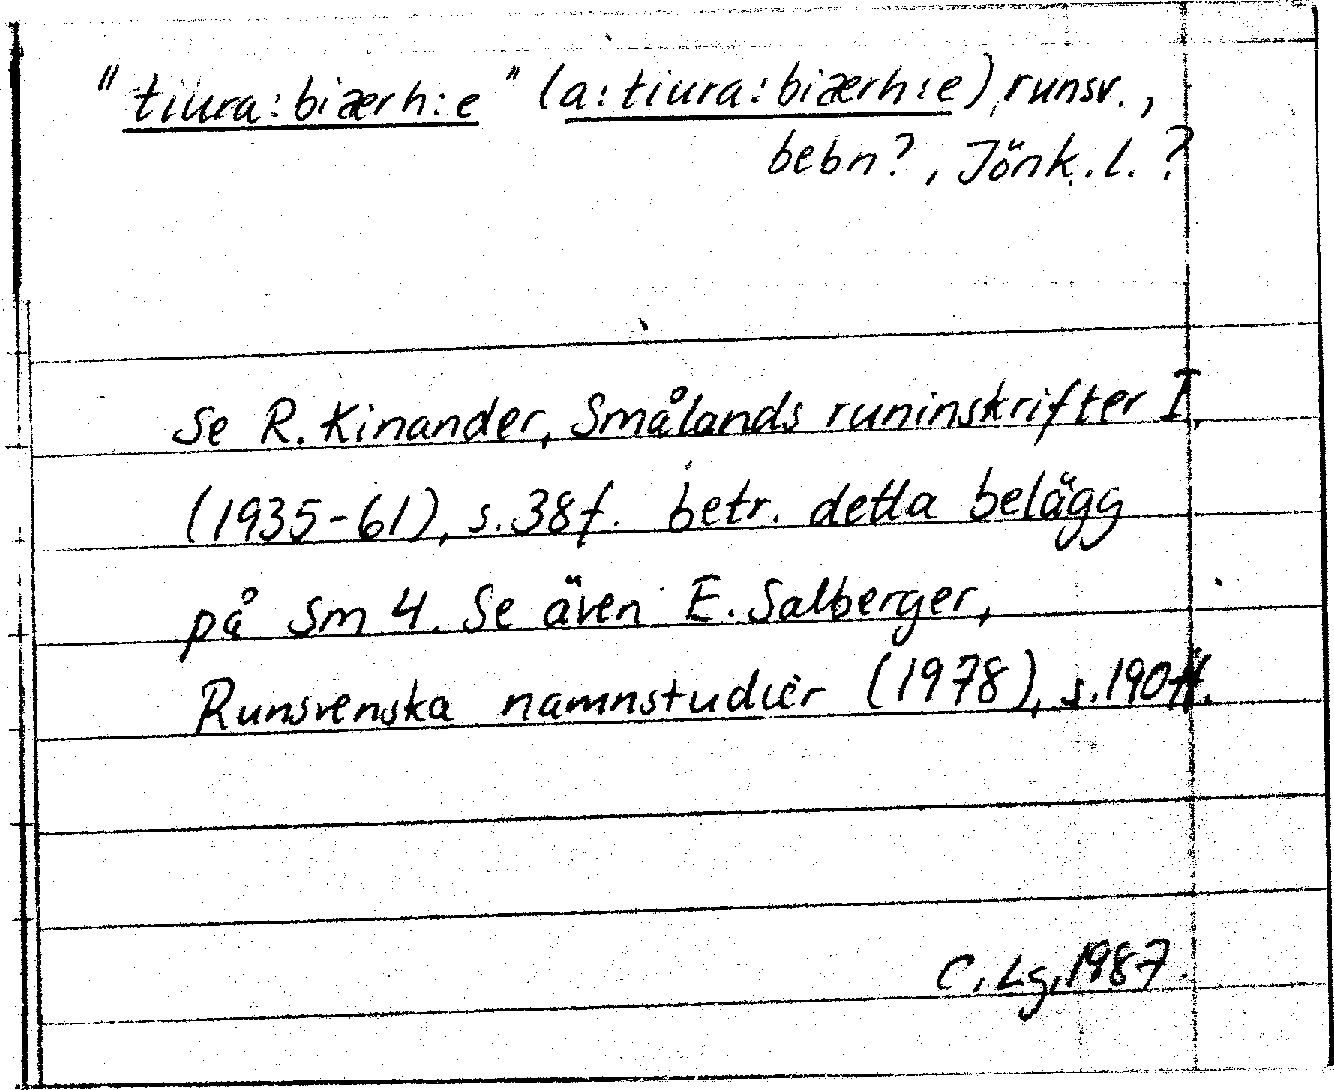 "tiura:biærh:e" (a:tiura:biærh:e), runsv.,
bebn?, Jönk.l.?
Se R. Kinander, Smålands runinskrifter I,
(1935-61), s.38f. betr. detta belägg
på Sm 4. Se även E. Salberger,
Runsvenska namnstudier (1978), s.190ff.
C. Lg, 1987.